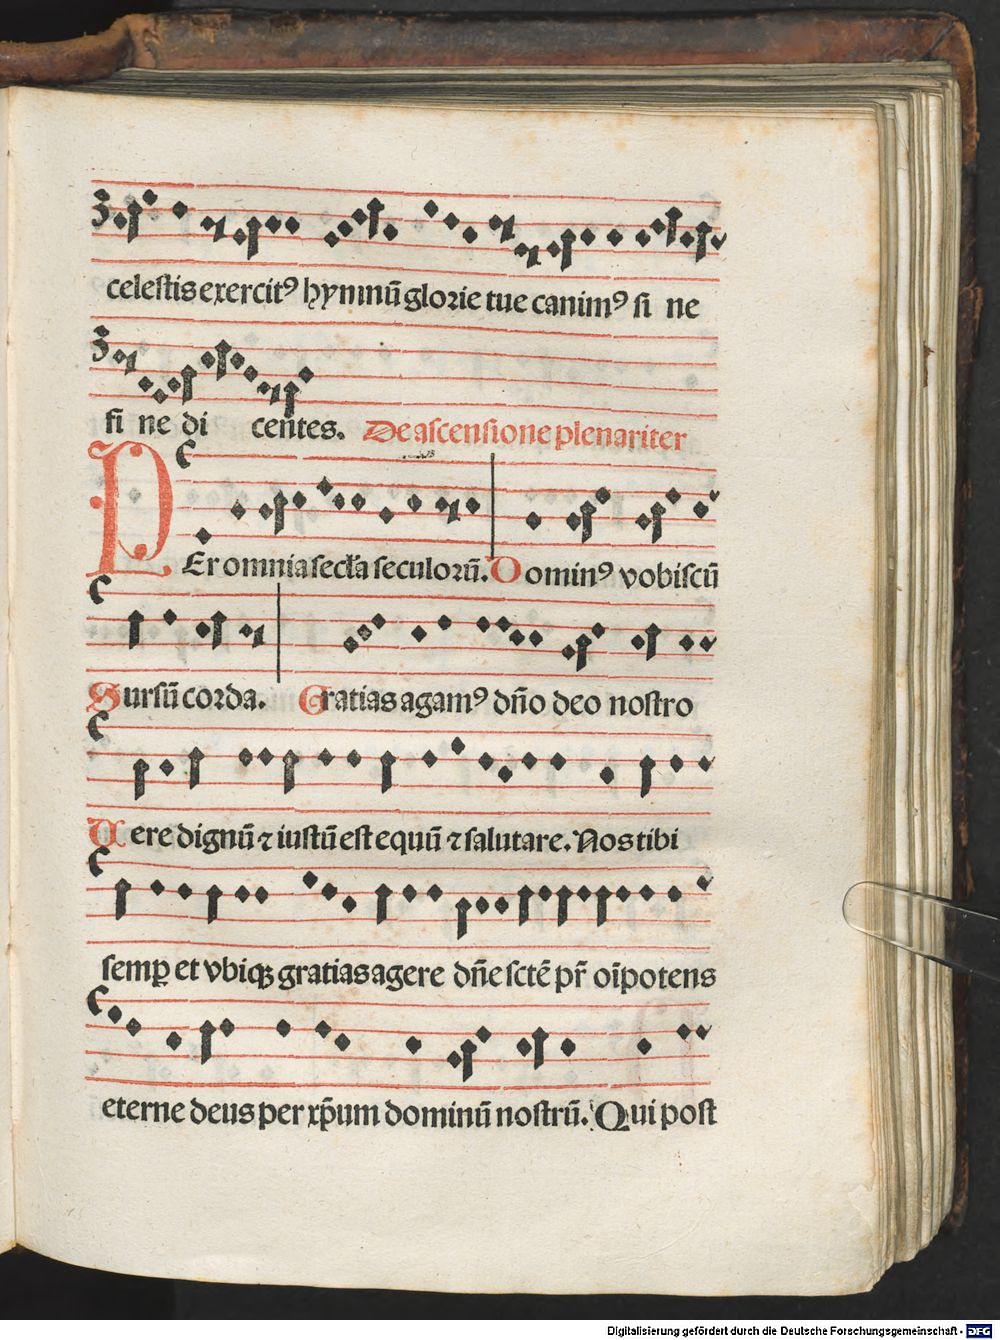 celestis exercitꝰ hymnū glorie tue canimꝰ si ne
fi ne di centes. De ascensione plenariter
PEr omnia secła seculorū. Dominꝰ vobiscū
Sursū corda. Gratias agamꝰ dn̄o deo nostro
Uere dignū ⁊ iustū est equū ⁊ salutare. Nos tibi
semꝑ et vbiqꝫ gratias agere dn̄e sctē pr̄ oī̄potens
eterne deus per xp̄um dominū nostrū. Qui post
Digitalisierung gefördert durch die Deutsche Forschungsgemeinschaft - DFG